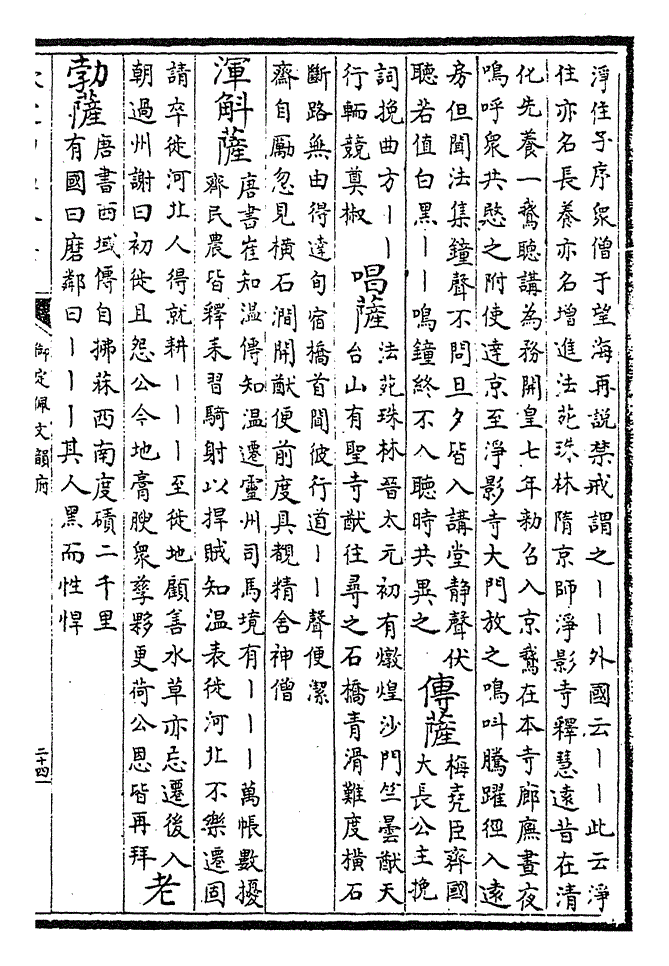 淨住子序衆僧于望海再説禁戒謂之丨丨外國云丨丨此云淨
住亦名長養亦名增進法苑珠林隋京師淨影寺釋慧遠昔在清
化先養一鵞聽講為務開皇七年勅召入京鵞在本寺廊廡晝夜
鳴呼衆共愍之附使達京至淨影寺大門放之鳴叫騰躍徑入遠
房但聞法集鐘聲不問旦夕皆入講堂静聲伏
聽若值白黑丨丨鳴鐘終不入聽時共異之
傳薩
梅堯臣齊國
大長公主挽
詞挽曲方丨丨
行輀競奠椒
唱薩
法苑珠林晉太元初有燉煌沙門竺曇猷天
台山有聖寺猷往尋之石橋青滑難度橫石
斷路無由得達旬宿橋首間彼行道丨丨聲便潔
齋自厲忽見橫石澗開猷便前度具覩精舍神僧
渾斛薩
唐書崔知温傳知温遷靈州司馬境有丨丨丨萬帳數擾
齊民農皆釋耒習騎射以捍賊知温表徙河北不樂遷固
請卒徙河北人得就耕丨丨丨至徙地顧善水草亦忘遷後入
朝過州謝曰初徙且怨公今地膏腴衆孳夥更荷公恩皆再拜
老
勃薩
唐書西域傳自拂菻西南度磧二千里
有國曰磨鄰曰丨丨丨其人黑而性悍
御定佩文韻府
二十四